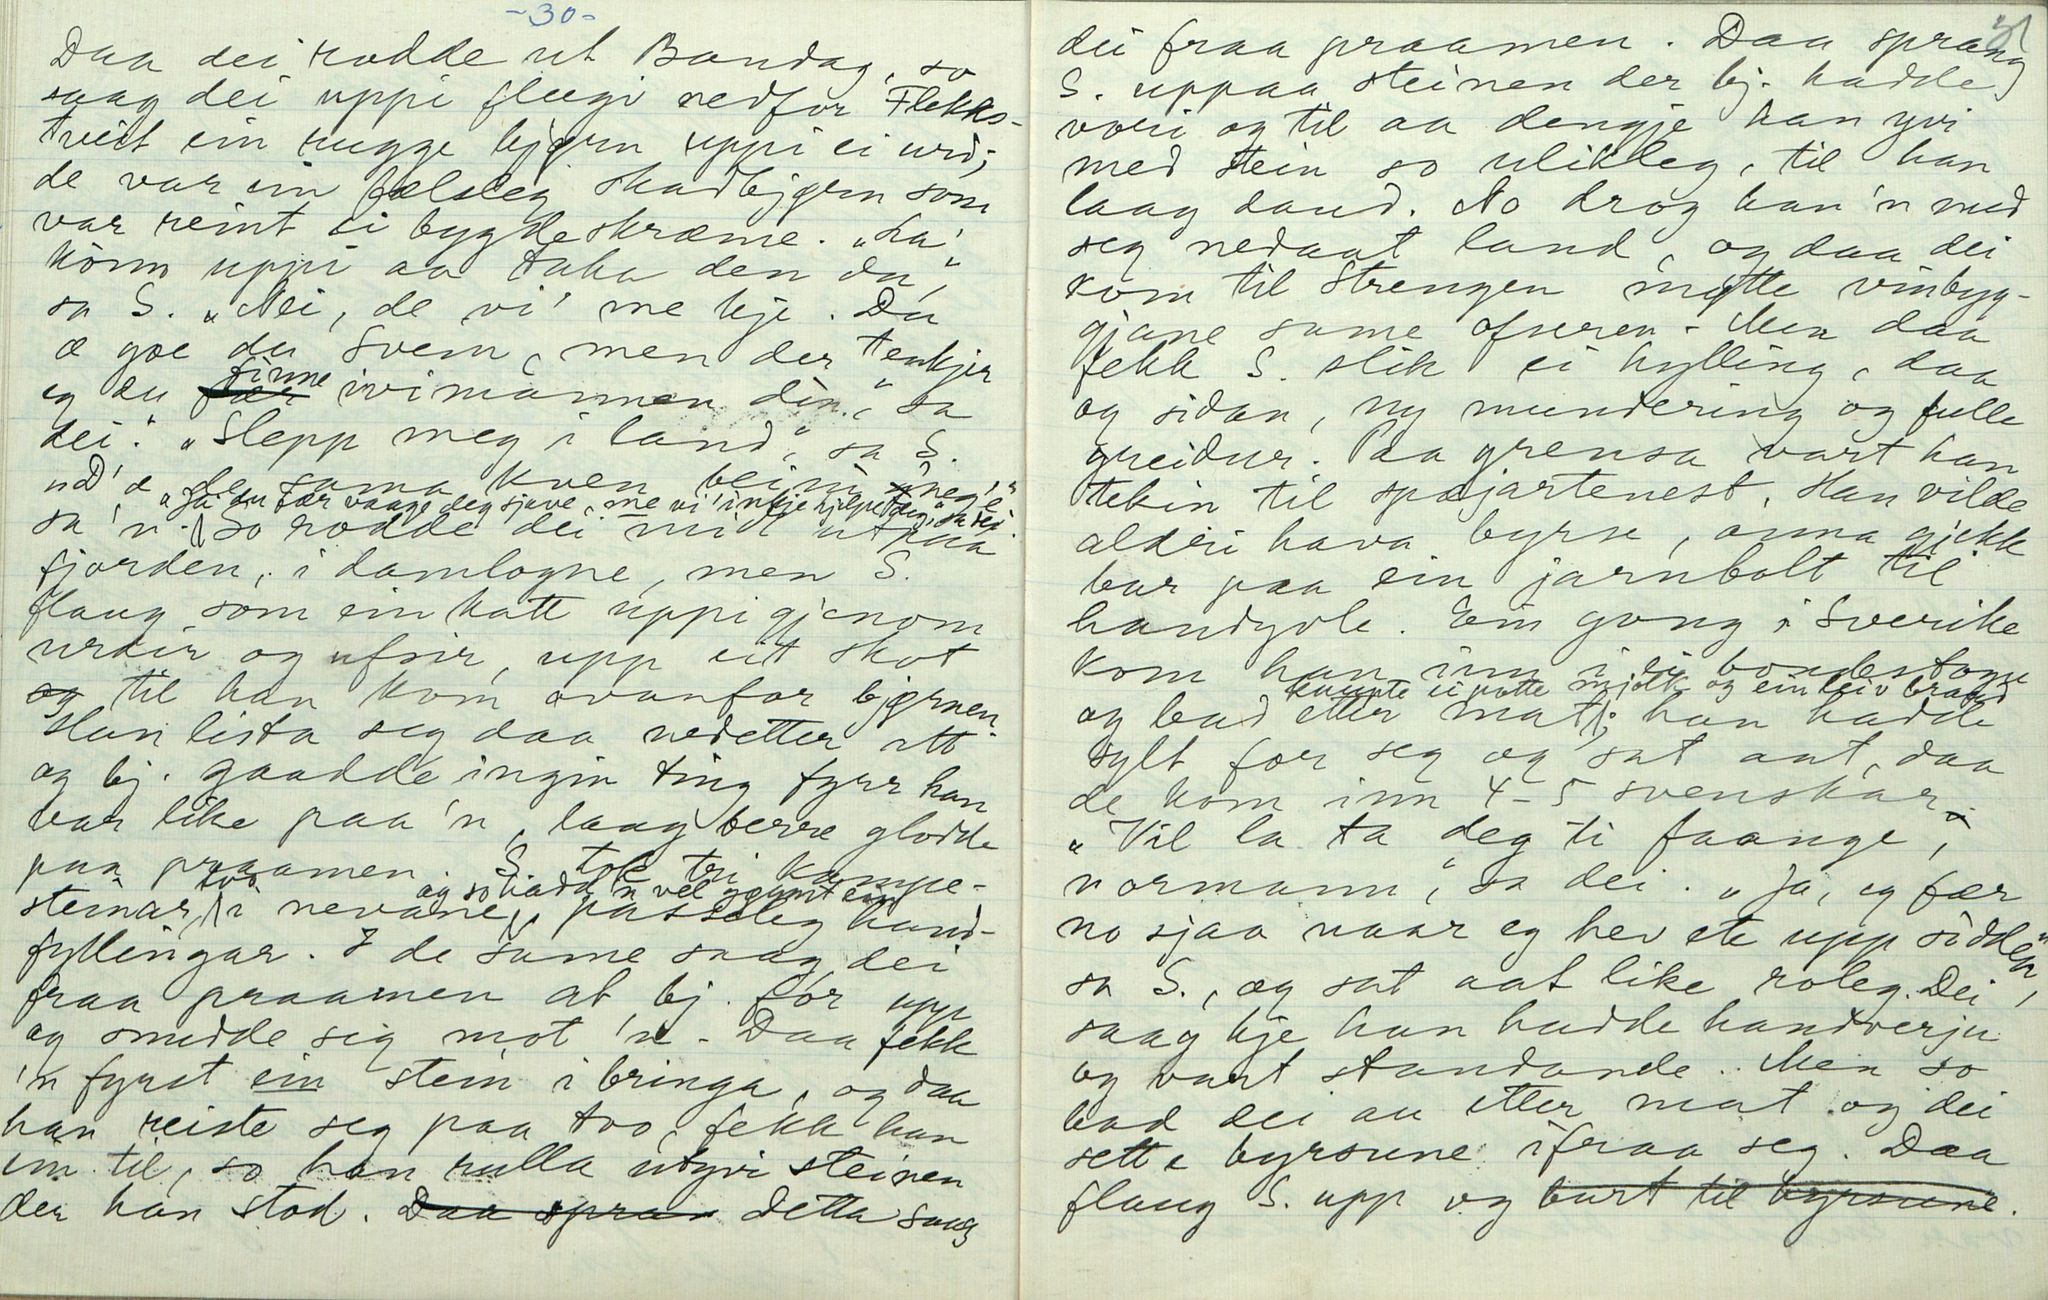 -30-
Daa dei rodde ut Bandag, so
saag dei uppi fleegi nedfor Flekks-
tveit ein rugge bjørn uppi ei urd;
de var ein fælsleg skadbjørn som
var reint ei bygdeskræme. "La'
kom uppi aa taka den du,"
sa S. "Nei, de vi' me kje. Du
æ goe du Svein, men der tenkjer
eg du finne ivimannen din," sa
dei. "Slepp meg i land," sa S.
"D'æ de sama kven beini gneg'e"
"Ja du fær vaage deg sjave, me vi' inkje hjelpe deg," sa dei.
sa 'n. So rodde dei mid utpaa
fjorden, i damlogne, men S.
flaug som ein katt uppigjenom
urdir og ufsir, upp eit skot
og til han kom ovanfor bjørnen.
Han lista seg daa nedetter att
og bj. gaadde ingin ting fyrr han
var like paa 'n, laag berre glodde
paa praamen. S. tok tri kampe-
tvo og so hadd 'n vel gøymt ein
steinar, i nevane, passeleg hand-
fyllingar. I de same saag dei
fraa praamen at bj. for upp
og snudde sig mot 'n. Daa fekk
'n fyrst ein stein i bringa, og daa
han reiste seg paa tvo, fekk han
ein til, so han rulla utyvi steinen
der han stod. Daa spran detta saag
31
dei fraa praamen. Daa sprang
S. uppaa steinen der bj. hadde
vori og til aa dengje han yvi
med stein so ulikleg, til han
laag daud. No drog han 'n med
seg nedaat land, og daa dei
kom til Strengen møtte vinbyg-
gjane same ofseren. Men daa
fekk S. slik ei hylling, daa
og sidan, ny mundering og fulle
greidur. Paa grensa vart han
tekin til spæjartenest. Han vilde
aldri hava byrse, anna gjekk
bar paa ein jarnbolt til
handgvle. Ein gong i Sverike
kom han inn i ei bondestoge
kaupte ei potte mjølk og ein leiv braud
og bad etter mat; han hadde
sylt for seg og sat aat, daa
de kom inn 4-5 svenskar.
"Vil la ta deg ti faange,
normann," sa dei. "Ja, eg fær
no sjaa naar eg hev ete upp sidden,"
sa S., og sat aat like roleg. Dei
saag kje han hadde handverju
og vart standande. Men so
bad dei au etter mat og dei
sette byrsune ifraa seg. Daa
flaug S. upp og burt til byrsune.